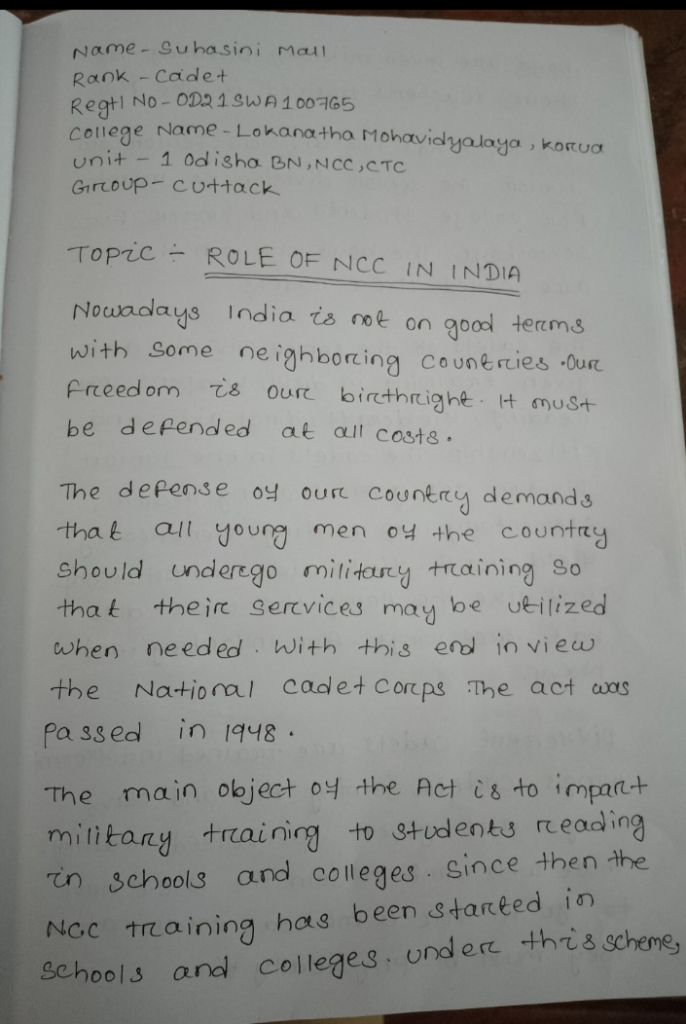 Name - Suhasini Mall
Rank - Cadet
Regtl No - OD21SWA100765
College Name - Lokanatha Mohavidyalaya, Korua
Unit - 1 Odisha BN, NCC, CTC
Group - Cuttack
Topic ÷ ROLE OF NCC IN INDIA
Nowadays India is not on good terms
with some neighboring countries. Our
freedom is our birthright. It must
be defended at all costs.
The defense of our country demands
that all young men of the country
should undergo military training so
that their services may be utilized
when needed. With this end in view
the National Cadet Corps. The act was
passed in 1948.
The main object of the Act is to impart
military training to students reading
in schools and colleges. Since then the
NCC training has been started in
schools and colleges. under this scheme,